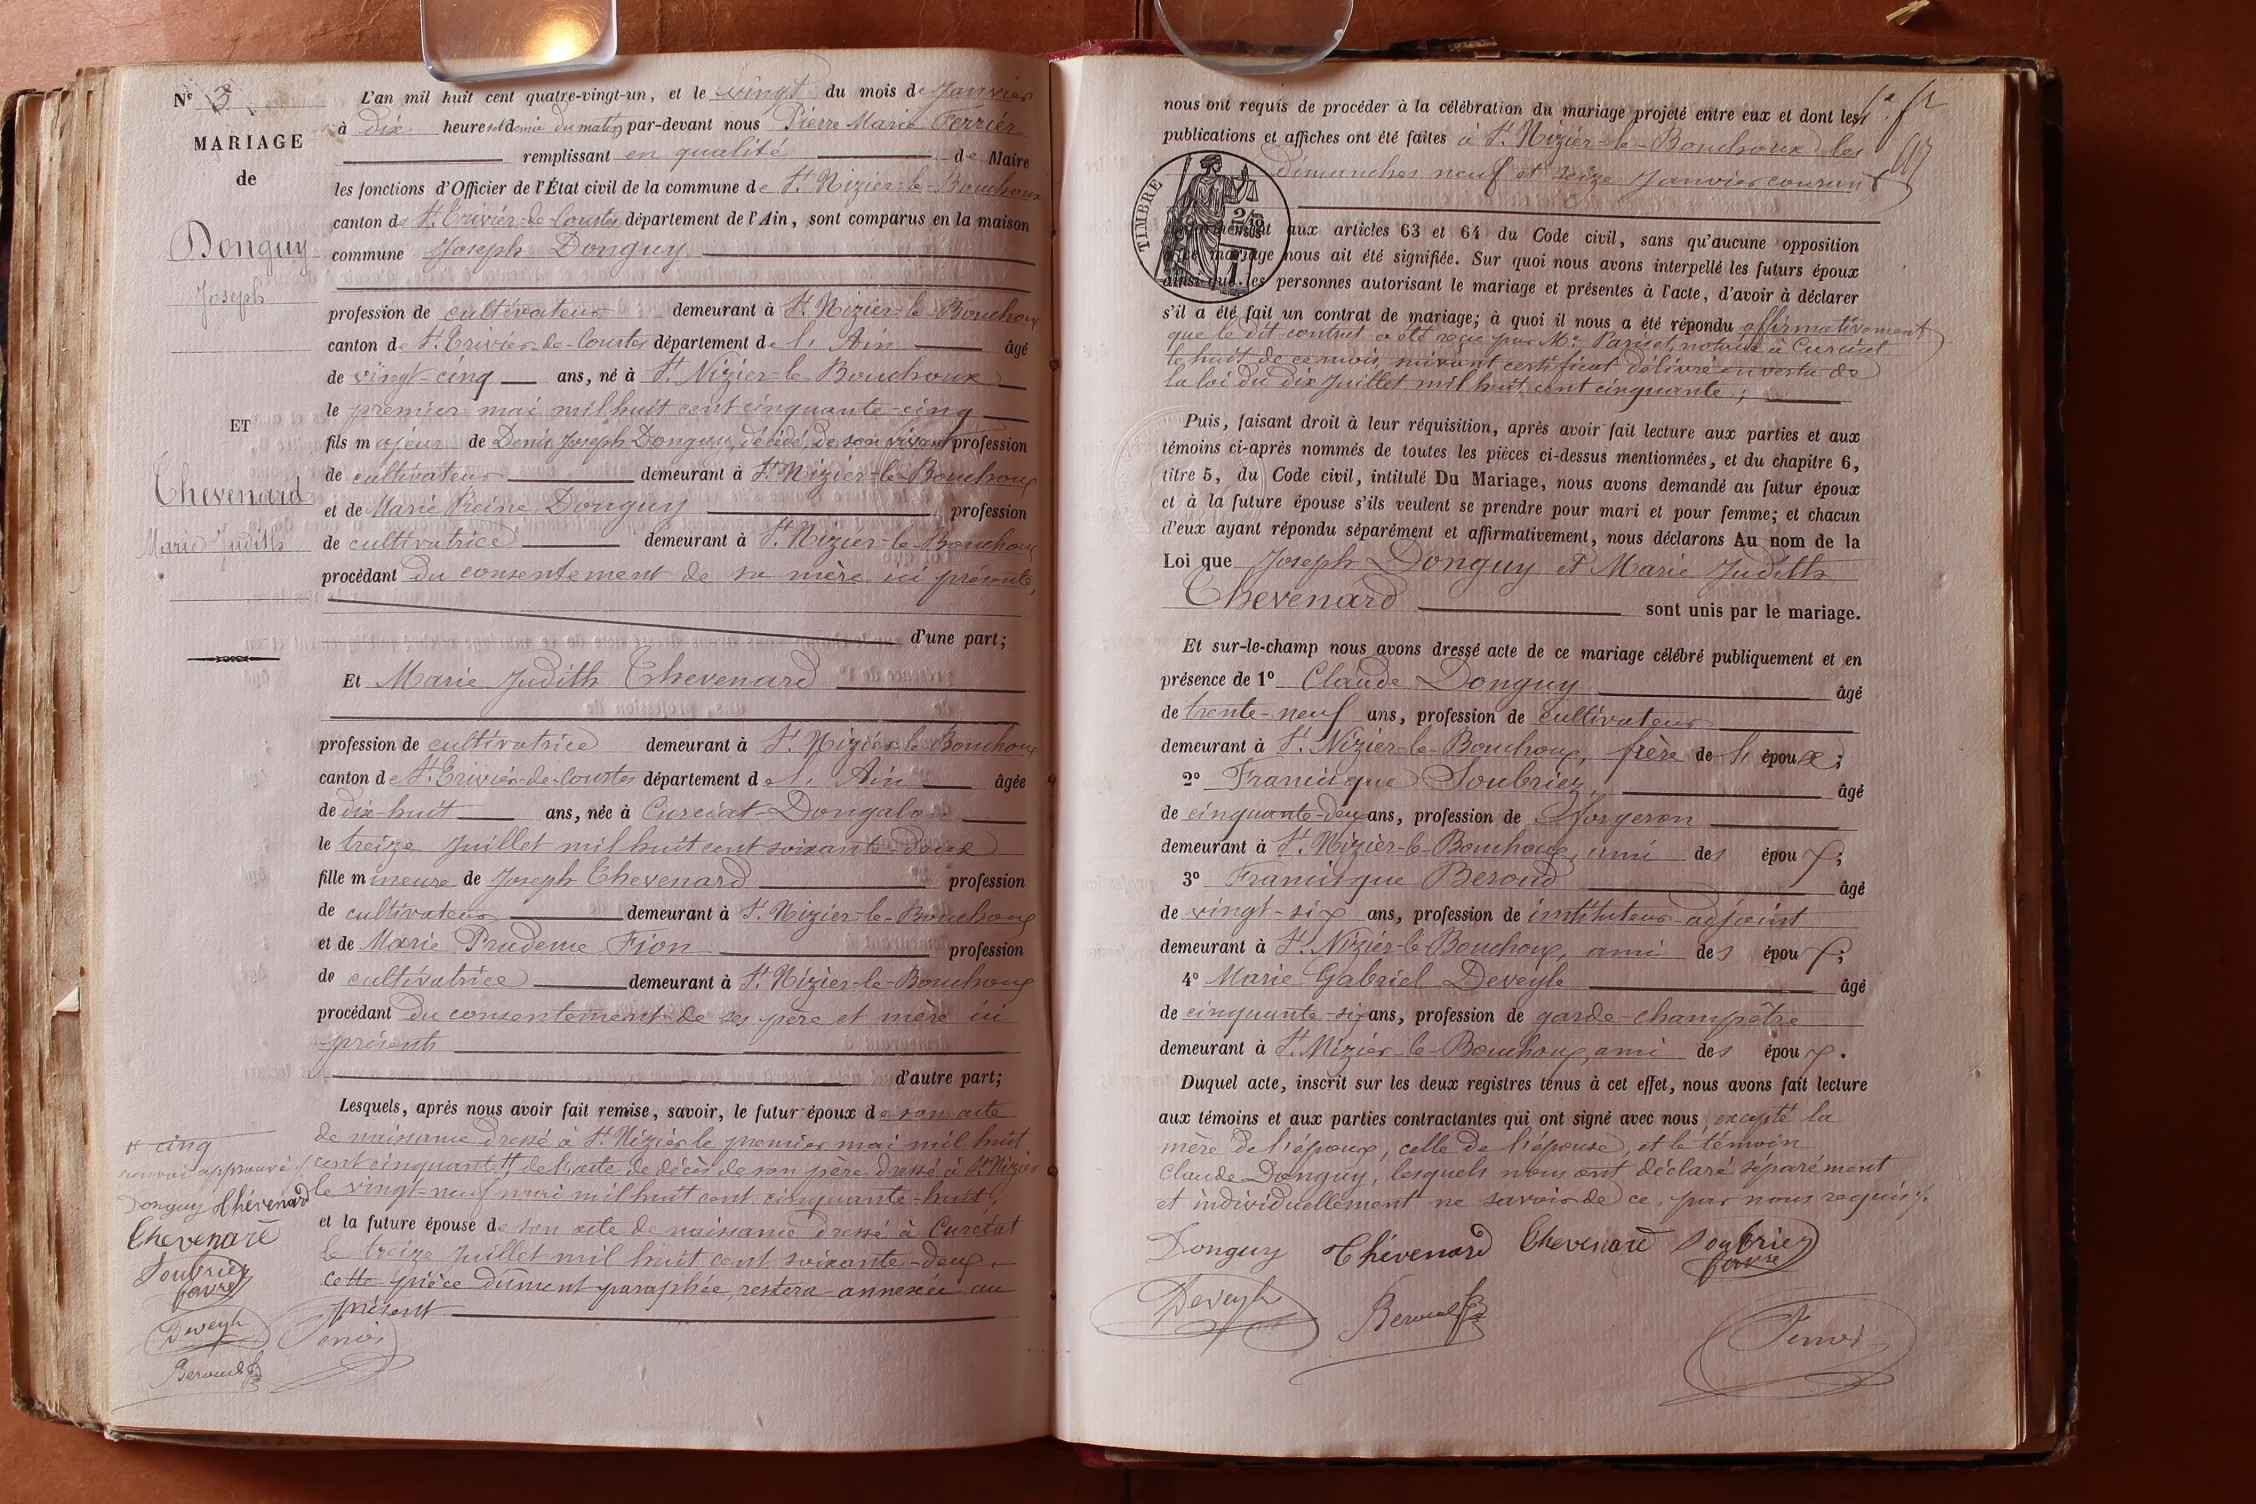 N° 3
MARIAGE
de
Donguy
Joseph
ET
Thevenard
Marie Judith
L'an mil huit cent quatre-vingt-un, et le vingt du mois de Janvier
à dix heures et demie du matin, par-devant nous Pierre Marie Ferrier
remplissant en qualité de Maire
les fonctions d'Officier de l'État civil de la commune de St. Nizier-le-Bouchoux
canton de St. Trivier-de-Courtes département de l'Ain, sont comparus en la maison
commune Joseph Donguy
profession de cultivateur demeurant à St. Nizier-le-Bouchoux
canton de St. Trivier-de-Courtes département de l'Ain âgé
de vingt-cinq ans, né à St. Nizier-le-Bouchoux
le premier mai mil huit cent cinquante-cinq
fils majeur de Denis Joseph Donguy, décédé, de son vivant profession
de cultivateur demeurant à St. Nizier-le-Bouchoux
et de Marie Reine Donguy profession
de cultivatrice demeurant à St. Nizier-le-Bouchoux
procédant du consentement de sa mère ici présente,
d'une part;
Et Marie Judith Thevenard
profession de cultivatrice demeurant à St. Nizier-le-Bouchoux
canton de St. Trivier-de-Courtes département de l'Ain âgée
de dix-huit ans, née à Curciat-Dongalon
le treize Juillet mil huit cent soixante-deux
fille mineure de Joseph Thevenard profession
de cultivateur demeurant à St. Nizier-le-Bouchoux
et de Marie Prudence Fion profession
de cultivatrice demeurant à St. Nizier-le-Bouchoux
procédant du consentement de ses père et mère ici
présents
d'autre part;
Lesquels, après nous avoir fait remise, savoir, le futur époux de son acte
de naissance dressé à St Nizier le premier mai mil huit
cent cinquante # de l'acte de décès de son père dressé à St Nizier
le vingt-neuf mai mil huit cent cinquante-huit;
et la future épouse de son acte de naissance dressé à Curciat
le treize Juillet mil huit cent soixante-deux,
cette pièce dûment paraphée, restera annexée au
présent
# cinq
renvoi approuvé
Donguy Thévenard
Thevenard
Soubriez
favre
Deveyle Ferrier
Beroud
nous ont requis de procéder à la célébration du mariage projeté entre eux et dont les
publications et affiches ont été faites à St. Nizier-le-Bouchoux les
dimanches neuf et seize Janvier courant
TIMBRE
aux articles 63 et 64 du Code civil, sans qu'aucune opposition
mariage nous ait été signifiée. Sur quoi nous avons interpellé les futurs époux
ainsi que les personnes autorisant le mariage et présentes à l'acte, d'avoir à déclarer
s'il a été fait un contrat de mariage; à quoi il nous a été répondu affirmativement
que le dit contrat a été reçu par Me. Parnet, notaire à Curciat
le huit de ce mois, suivant certificat délivré en vertu de
la loi du dix Juillet mil huit cent cinquante;
Puis, faisant droit à leur réquisition, après avoir fait lecture aux parties et aux
témoins ci-après nommés de toutes les pièces ci-dessus mentionnées, et du chapitre 6,
titre 5, du Code civil, intitulé Du Mariage, nous avons demandé au futur époux
et à la future épouse s'ils veulent se prendre pour mari et pour femme; et chacun
d'eux ayant répondu séparément et affirmativement, nous déclarons Au nom de la
Loi que Joseph Donguy et Marie Judith
Thevenard sont unis par le mariage.
Et sur-le-champ nous avons dressé acte de ce mariage célébré publiquement et en
présence de 1° Claude Donguy âgé
de trente-neuf ans, profession de cultivateur
demeurant à St. Nizier-le-Bouchoux, frère de l' époux;
2° Francisque Soubriez, âgé
de cinquante-deux ans, profession de Forgeron
demeurant à St. Nizier-le-Bouchoux, ami des époux;
3° Francisque Beroud âgé
de vingt-six ans, profession de instituteur-adjoint
demeurant à St. Nizier-le-Bouchoux, ami des époux;
4° Marie Gabriel Deveyle âgé
de cinquante-six ans, profession de garde-champêtre
demeurant à St. Nizier-le-Bouchoux, ami des époux.
Duquel acte, inscrit sur les deux registres tenus à cet effet, nous avons fait lecture
aux témoins et aux parties contractantes qui ont signé avec nous, excepté la
mère de l'époux, celle de l'épouse, et le témoin
Claude Donguy, lesquels nous ont déclaré séparément
et individuellement ne savoir de ce, par nous requis.
Donguy Thévenard Thevenard Soubriez
favre
Deveyle Beroud Ferrier